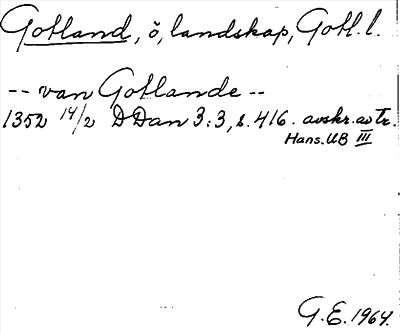 Gotland, ö, landskap, Gotl. l.
-- van Gotlande --
1352 14/2 DDan 3:3, s. 416. avskr. av tr.
Hans. UB III
G.E. 1964.